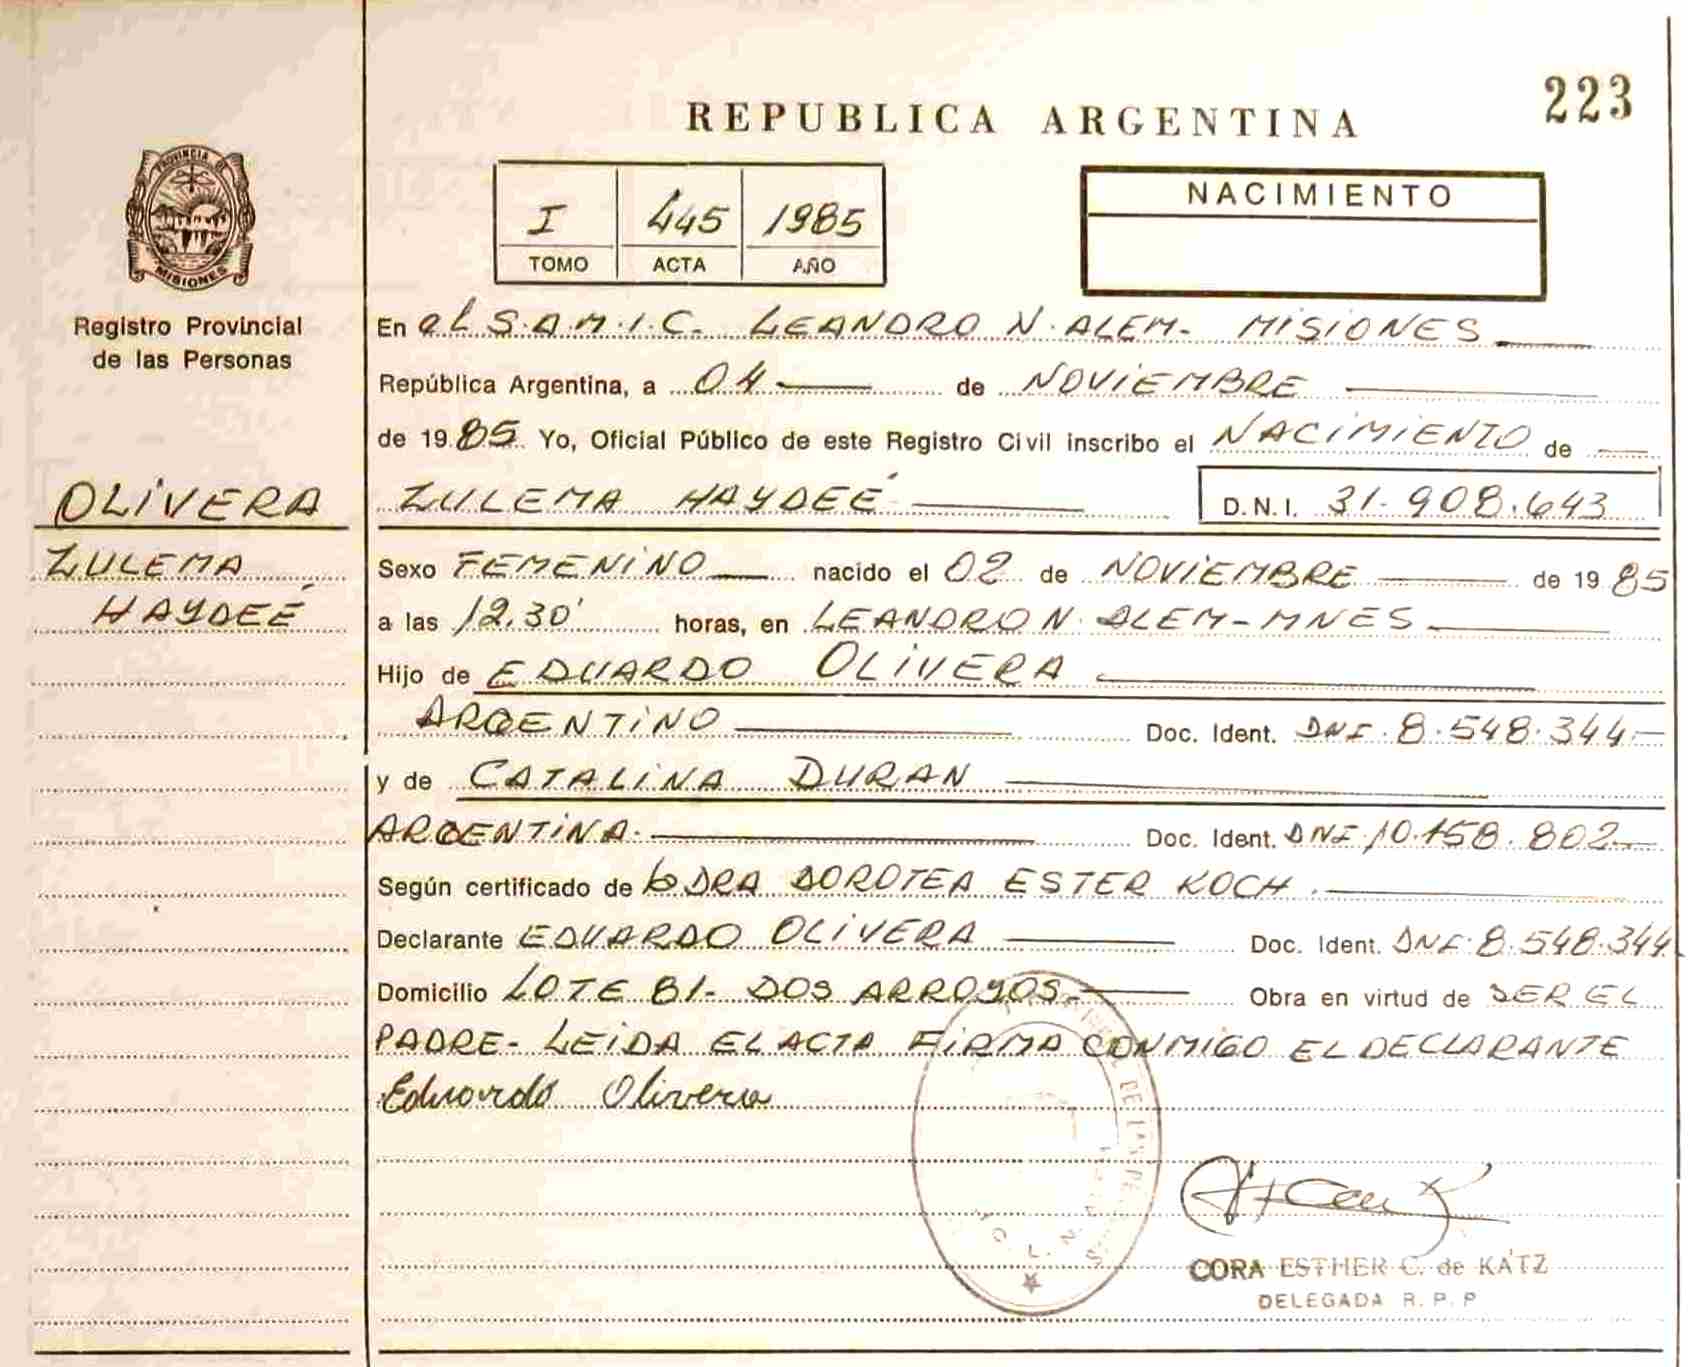 223
REPUBLICA ARGENTINA
PROVINCIA DE
MISIONES
Registro Provincial
de las Personas
I 445 1985
TOMO ACTA AÑO
NACIMIENTO
En el S.A.M.I.C. LEANDRO N. ALEM- MISIONES
República Argentina, a 04 de NOVIEMBRE
de 1985 Yo, Oficial Público de este Registro Civil inscribo el NACIMIENTO de
OLIVERA
ZULEMA
HAYDEÉ
ZULEMA HAYDEÉ D.N.I. 31.908.643
Sexo FEMENINO nacido el 02 de NOVIEMBRE de 1985
a las 12,30' horas, en LEANDRO N. ALEM-MNES
Hijo de EDUARDO OLIVERA
ARGENTINO Doc. Ident. DNI. 8.548.344
y de CATALINA DURAN
ARGENTINA. Doc. Ident. DNI 10.158.802
Según certificado de DRA DOROTEA ESTER KOCH.
Declarante EDUARDO OLIVERA Doc. Ident. DNI. 8.548.344
Domicilio LOTE 81- DOS ARROYOS- Obra en virtud de SER EL
PADRE- LEIDA EL ACTA FIRMA CONMIGO EL DECLARANTE
Eduardo Olivera
CORA ESTHER C. de KATZ
DELEGADA R. P. P